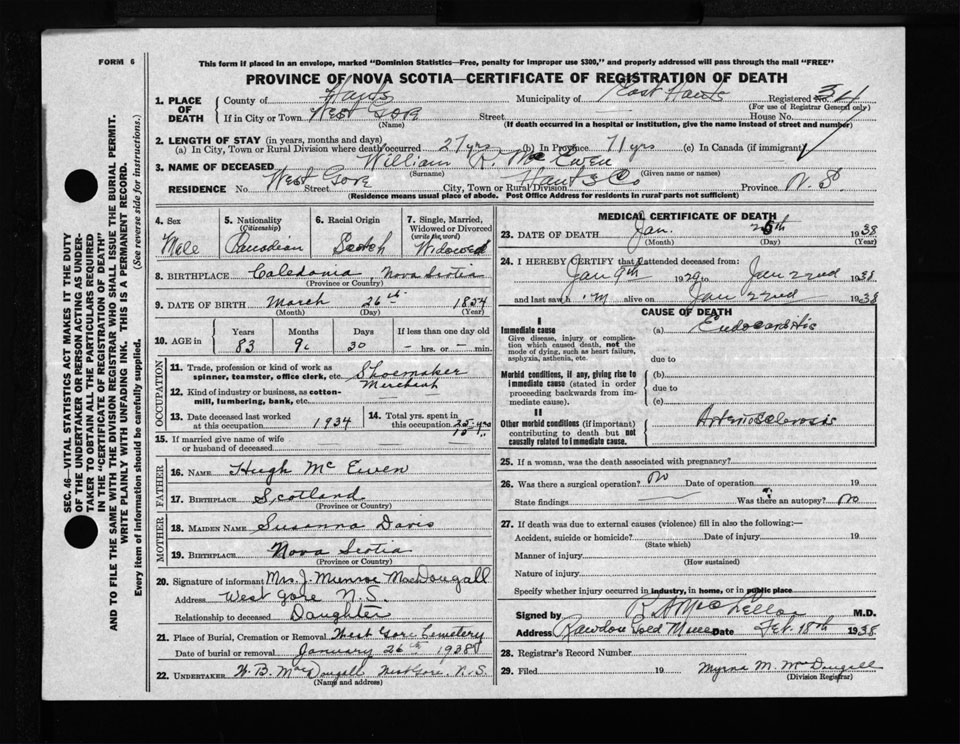 FORM 6
This form if placed in an envelope, marked "Dominion Statistics—Free, penalty for improper use $300," and properly addressed will pass through the mail "FREE"
PROVINCE OF NOVA SCOTIA—CERTIFICATE OF REGISTRATION OF DEATH
1. PLACE OF DEATH County of Hants Municipality of East Hants Registered No. 34
(For use of Registrar General only)
If in City or Town West Gore Street House No.
(Name) (If death occurred in a hospital or institution, give the name instead of street and number)
2. LENGTH OF STAY (in years, months and days)
(a) In City, Town or Rural Division where death occurred 27 yrs (b) In Province 71 yrs (c) In Canada (if immigrant)
3. NAME OF DECEASED William K. McEwen
(Surname) (Given name or names)
RESIDENCE No. West Gore Street City, Town or Rural Division Hants Co Province N.S.
(Residence means usual place of abode. Post Office Address for residents in rural parts not sufficient)
4. Sex Male
5. Nationality (Citizenship) Canadian
6. Racial Origin Scotch
7. Single, Married, Widowed or Divorced (write the word) Widowed
8. BIRTHPLACE Caledonia, Nova Scotia
(Province or Country)
9. DATE OF BIRTH March 26th 1854
(Month) (Day) (Year)
10. AGE in Years 83 Months 9 Days 30 If less than one day old — hrs. or — min.
OCCUPATION
11. Trade, profession or kind of work as spinner, teamster, office clerk, etc. Shoemaker
Merchant
12. Kind of industry or business, as cotton-mill, lumbering, bank, etc.
13. Date deceased last worked at this occupation 1934
14. Total yrs. spent in this occupation 25 yrs
15. If married give name of wife or husband of deceased
FATHER
16. NAME Hugh McEwen
17. BIRTHPLACE Scotland
(Province or Country)
MOTHER
18. MAIDEN NAME Susanna Davis
19. BIRTHPLACE Nova Scotia
(Province or Country)
20. Signature of informant Mrs. J. Munroe MacDougall
Address West Gore N.S.
Relationship to deceased Daughter
21. Place of Burial, Cremation or Removal West Gore Cemetery
Date of burial or removal January 26th 1938
22. UNDERTAKER W. B. MacDougall West Gore, N.S.
(Name and address)
MEDICAL CERTIFICATE OF DEATH
23. DATE OF DEATH Jan. 25th 1938
(Month) (Day) (Year)
24. I HEREBY CERTIFY that I attended deceased from:
Jan 9th 1929 to Jan 22nd 1938
and last saw him alive on Jan 22nd 1938
CAUSE OF DEATH
I
Immediate cause
Give disease, injury or complication which caused death, not the mode of dying, such as heart failure, asphyxia, asthenia, etc.
(a) Endocarditis
due to
Morbid conditions, if any, giving rise to immediate cause (stated in order proceeding backwards from immediate cause).
(b)
due to
(c)
II
Other morbid conditions (if important) contributing to death but not causally related to immediate cause.
Arteriosclerosis
25. If a woman, was the death associated with pregnancy?
26. Was there a surgical operation? No Date of operation 19
State findings Was there an autopsy? No
27. If death was due to external causes (violence) fill in also the following:—
Accident, suicide or homicide? Date of injury 19
(State which)
Manner of injury
(How sustained)
Nature of injury
Specify whether injury occurred in industry, in home, or in public place
Signed by R A McLellan M.D.
Address Rawdon Gold Mines Date Feb. 18th 1938
28. Registrar's Record Number
29. Filed 19 Myrna M. McDougall
(Division Registrar)
SEC. 46—VITAL STATISTICS ACT MAKES IT THE DUTY
OF THE UNDERTAKER OR PERSON ACTING AS UNDER-
TAKER TO OBTAIN ALL THE PARTICULARS REQUIRED
IN THE "CERTIFICATE OF REGISTRATION OF DEATH"
AND TO FILE THE SAME WITH THE DIVISION REGISTRAR WHO SHALL ISSUE THE BURIAL PERMIT.
WRITE PLAINLY WITH UNFADING INK. THIS IS A PERMANENT RECORD.
Every item of information should be carefully supplied. (See reverse side for instructions.)